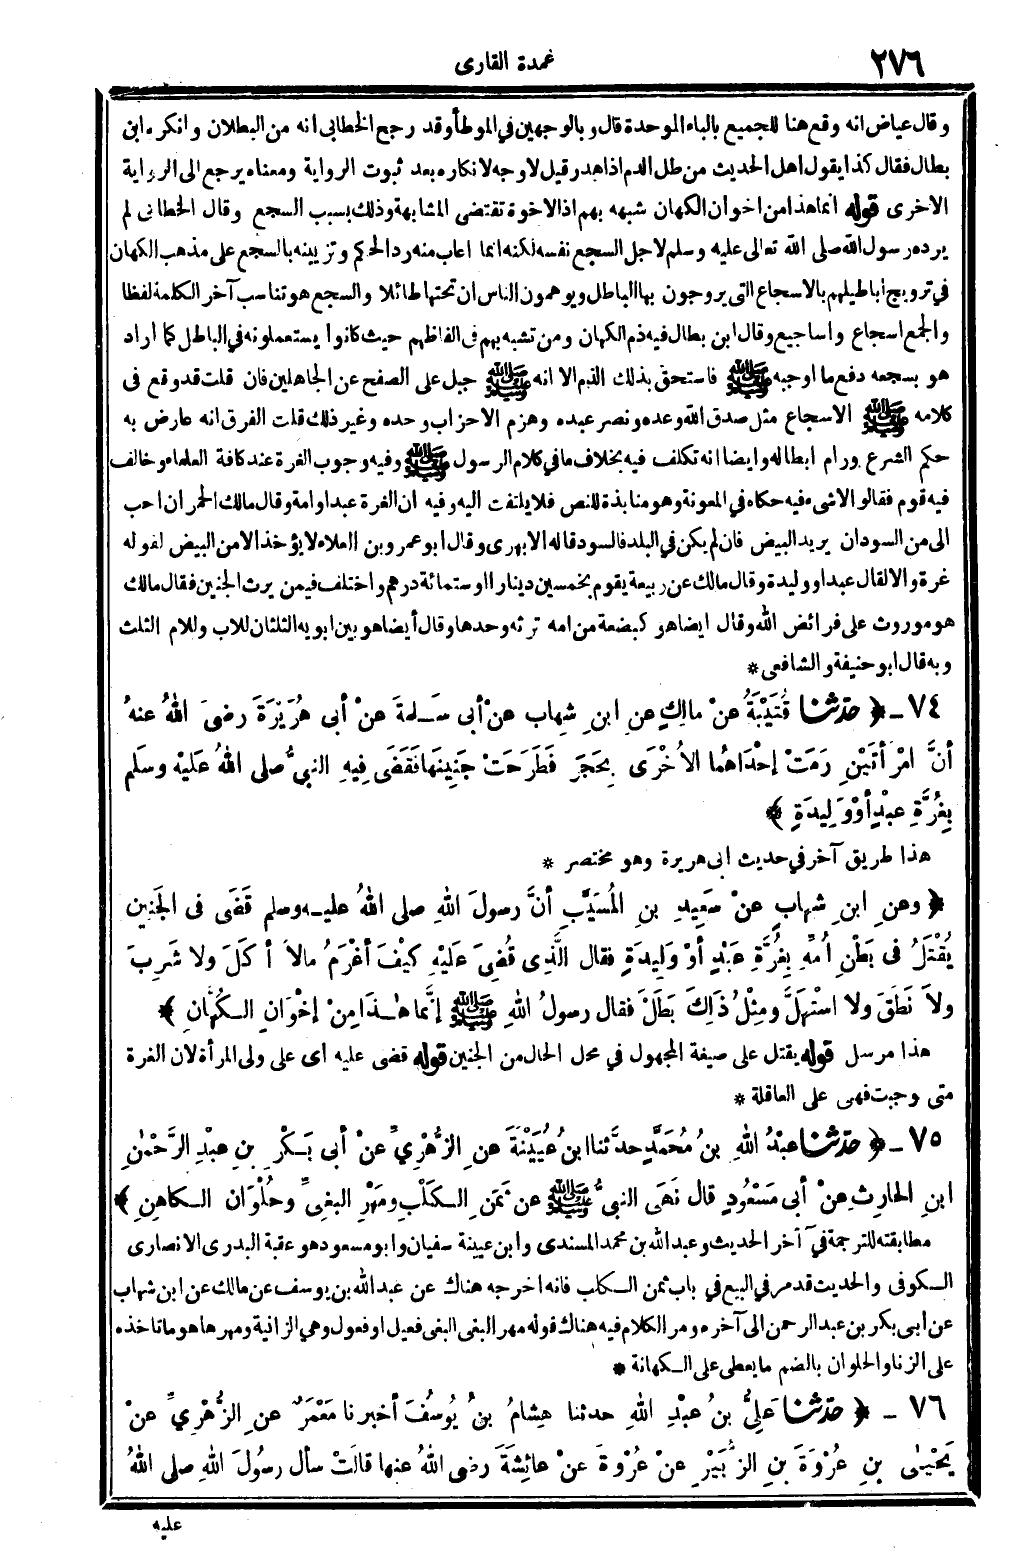 ٢٧٦
عمدة القارى
وقال عياض انه وقع هنا للجميع بالباء الموحدة قال وبالوجهين في الموطأ وقد رجح الخطابى انه من البطلان وانكره ابن
بطال فقال كذا يقول اهل الحديث من طل الدم اذا هدر قيل لا وجه لانكاره بعد ثبوت الرواية ومعناه يرجع الى الرواية
الاخرى قوله انما هذا من اخوان الكهان شبهه بهم اذ الاخوة تقتضى المشابهة وذلك بسبب السجع وقال الخطابى لم
يرده رسول الله صلى الله تعالى عليه وسلم لاجل السجع نفسه لكنه انما اعاب منه رد الحكم وتزيينه بالسجع على مذهب الكهان
في ترويج أباطيلهم بالاسجاع التى يروجون بها الباطل ويوهمون الناس ان تحتها طائلا والسجع هو تناسب آخر الكلمة لفظا
والجمع اسجاع واساجيع وقال ابن بطال فيه ذم الكهان ومن تشبه بهم فى الفاظهم حيث كانوا يستعملونه في الباطل كما اراد
هو بسجعه دفع ما اوجبه ﷺ فاستحق بذلك الذم الا انه ﷺ جبل على الصفح عن الجاهلين فان قلت قد وقع فى
كلامه ﷺ الاسجاع مثل صدق الله وعده ونصر عبده وهزم الاحزاب وحده وغير ذلك قلت الفرق انه عارض به
حكم الشرع ورام ابطاله وايضا انه تكلف فيه بخلاف ما في كلام الرسول ﷺ وفيه وجوب الغرة عند كافة العلماء وخالف
فيه قوم فقالوا لا شىء فيه حكاه في المعونة وهو منابذة للنص فلا يلتفت اليه وفيه ان الغرة عبد او امة وقال مالك الحمران احب
الى من السودان يريد البيض فان لم يكن في البلد فالسود قاله الابهرى وقال ابو عمرو بن العلاء لا يؤخذ الا من البيض لقوله
غرة والا لقال عبدا ووليدة وقال مالك عن ربيعة يقوم بخمسين دينارا او ستمائة درهم واختلف فيمن يرث الجنين فقال مالك
هو موروث على فرائض الله وقال ايضا هو كبضعة من امه ترثه وحدها وقال أيضا هو بين ابويه الثلثان للاب وللام الثلث
وبه قال ابو حنيفة والشافعى *
٧٤ ـ ﴿ حَدَّثَنَا قُتَيْبَةُ عَنْ مالِكٍ عنِ ابنِ شِهابٍ عنْ أبى سَـلَمَةَ عنْ أبى هُرَيْرَةَ رضىَ اللهُ عنهُ
أنَّ امْرأتَيْنِ رَمَتْ إحْدَاهُما الأُخْرَى بِحَجَرٍ فَطَرَحَتْ جَنِينَها فَقَضَى فِيهِ النبىُّ صلى اللهُ عَلَيْه وسلَّم
بِغُرَّةٍ عبْدٍ أوْ وَلِيدَةٍ ﴾
هذا طريق آخر في حديث ابى هريرة وهو مختصر *
﴿ وعنِ ابنِ شِهابٍ عنْ سَعِيدِ بنِ المُسَيَّبِ أنَّ رسولَ اللهِ صلى اللهُ عليـه وسلم قَضَى فى الجَنِينِ
يُقْتَلُ فى بَطْنِ أُمِّهِ بِغُرَّةٍ عَبْدٍ أوْ وَلِيدَةٍ فقال الَّذِى قُضِىَ عَلَيْهِ كيْفَ أغْرَمُ مالاَ أكَلَ ولا شَرِبَ
ولاَ نَطَقَ ولا اسْتَهَلَّ ومِثْلُ ذَلِكَ بَطَلَ فقال رسولُ اللهِ ﷺ إنَّما هٰـذَا مِنْ إخْوَانِ الـكُهَّانِ ﴾
هذا مرسل قوله يقتل على صيغة المجهول في محل الحال من الجنين قوله قضى عليه اى على ولى المرأة لان الغرة
متى وجبت فهى على العاقلة *
٧٥ ـ ﴿ حَدَّثَنَا عبْدُ اللهِ بنُ مُحَمَّدٍ حدَّثنا ابنُ عُيَيْنَةَ عنِ الزُّهْرِيِّ عنْ أبى بَـكْرِ بنِ عبْدِ الرَّحْمٰنِ
ابنِ الحارِثِ عنْ أبى مَسْعُودٍ قال نَهَى النبىُّ ﷺ عن ثمَنِ الـكَلْبِ ومَهْرِ البغِىِّ وحُلْوَانِ الـكاهِنِ ﴾
مطابقته للترجمة في آخر الحديث وعبد الله بن محمد المسندى وابن عيينة سفيان وابو مسعود هو عقبة البدرى الانصارى
الـكوفى والحديث قد مر في البيع في باب ثمن الـكلب فانه اخرجه هناك عن عبد الله بن يوسف عن مالك عن ابن شهاب
عن أبى بكر بن عبد الرحمن الى آخره ومر الكلام فيه هناك قوله مهر البغى البغى فعيل او فعول وهي الزانية ومهرها هو ما تاخذه
على الزنا والحلوان بالضم ما يعطى على الـكهانة *
٧٦ ـ ﴿ حَدَّثَنَا عَلِيُّ بنُ عبْدِ اللهِ حدثنا هِشامُ بنُ يُوسُفَ أخبرنا مَعْمَرٌ عنِ الزُّهْرِيِّ عنْ
يَحْيٰى بنِ عُرْوَةَ بنِ الزُّبَيْرِ عنْ عُرْوةَ عنْ عائِشَةَ رضى اللهُ عنها قالَتْ سأل رسُولَ اللهِ صلى اللهُ
عليه